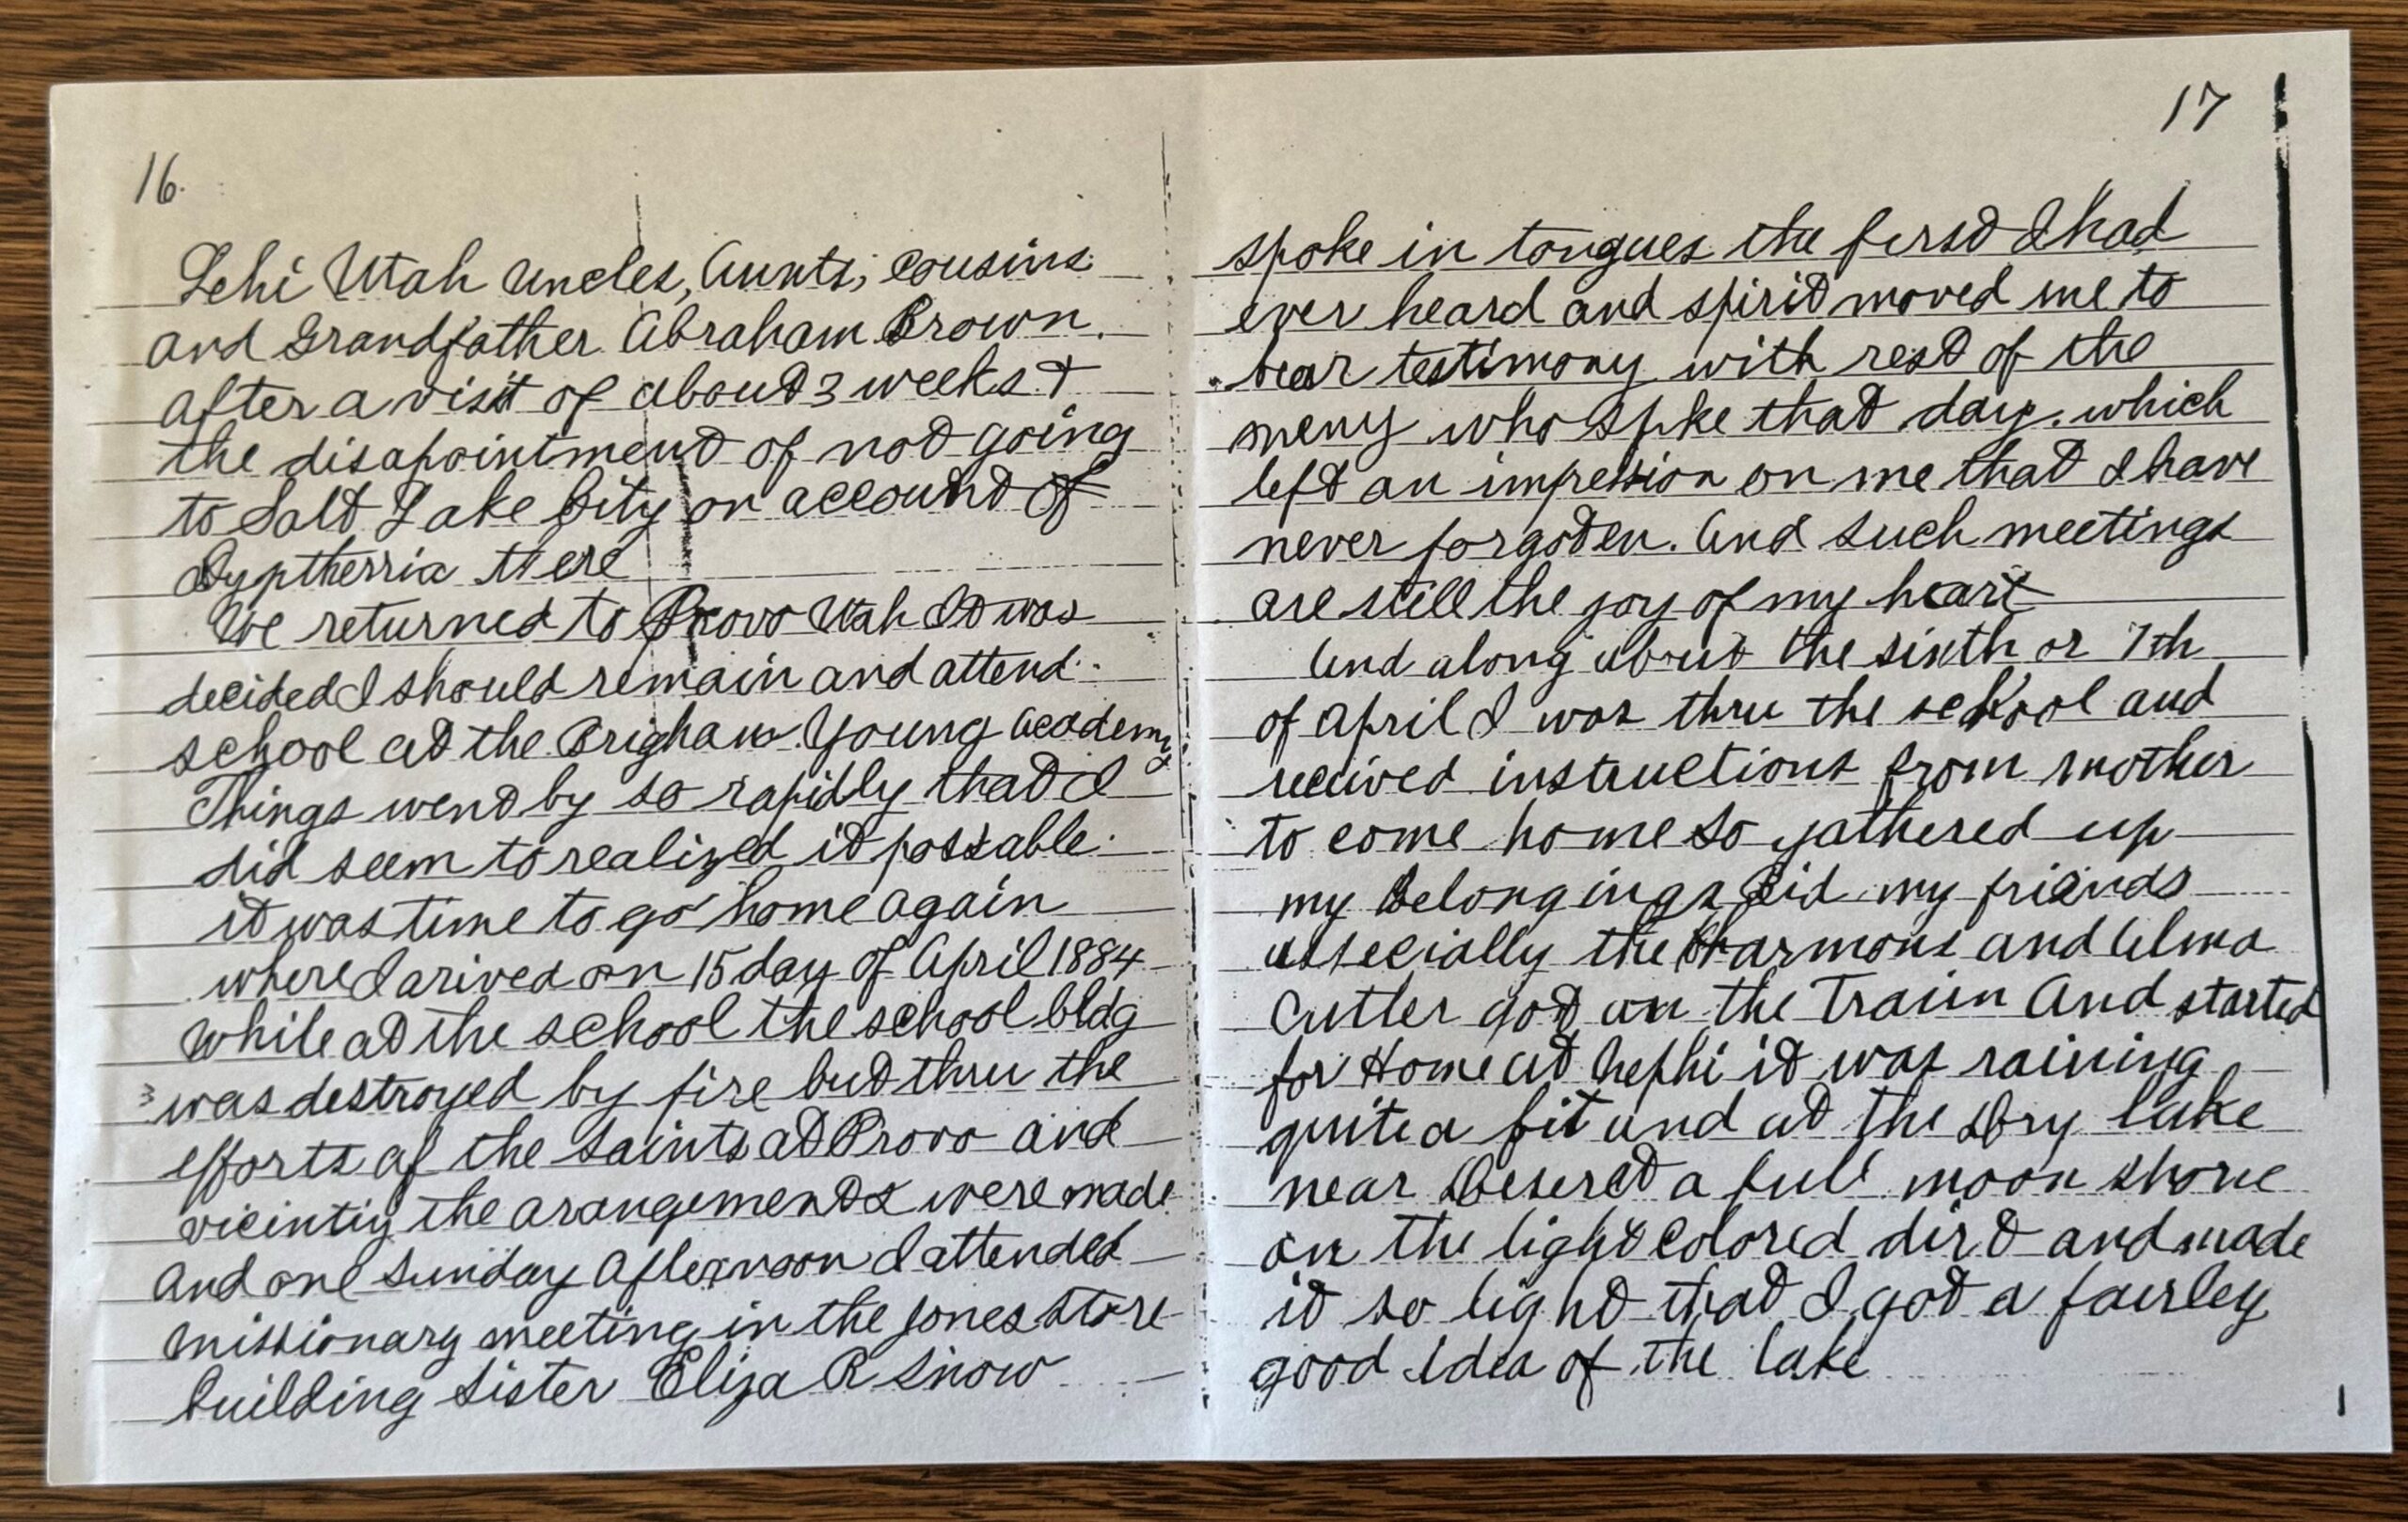 16.
Lehi Utah Uncles, Aunts, Cousins
and Grandfather Abraham Brown.
after a visit of about 3 weeks &
the disapointment of not going
to Salt Lake City on account of
Dyptherria there
We returned to Provo Utah It was
decided I should remain and attend
school at the Brigham Young Academy
Things went by so rapidly that I
did seem to realized it possable.
it was time to go home again
where I arived on 15 day of April 1884
While at the school the school bldg
was destroyed by fire but thru the
efforts of the Saints at Provo and
vicintiy the arangements were made
and one Sunday Afternoon I attended
missionary meeting in the Jones Store
building Sister Eliza R Snow
17
spoke in tongues the first I had
ever heard and spirit moved me to
bear testimony with rest of the
meny who spke that day. which
left an impression on me that I have
never forgoten. And such meetings
are still the joy of my heart
And along about the sixth or 7th
of April I was thru the school and
recived instructions from mother
to come home so gathered up
my belongings Bid my friends
especially the Harmons and Alma
Cutler got on the Train And started
for Home at Nephi it was raining
quite a bit and at the Dry lake
near Deseret a full moon shone
on the light colored dirt and made
it so light that I got a fairley
good idea of the lake